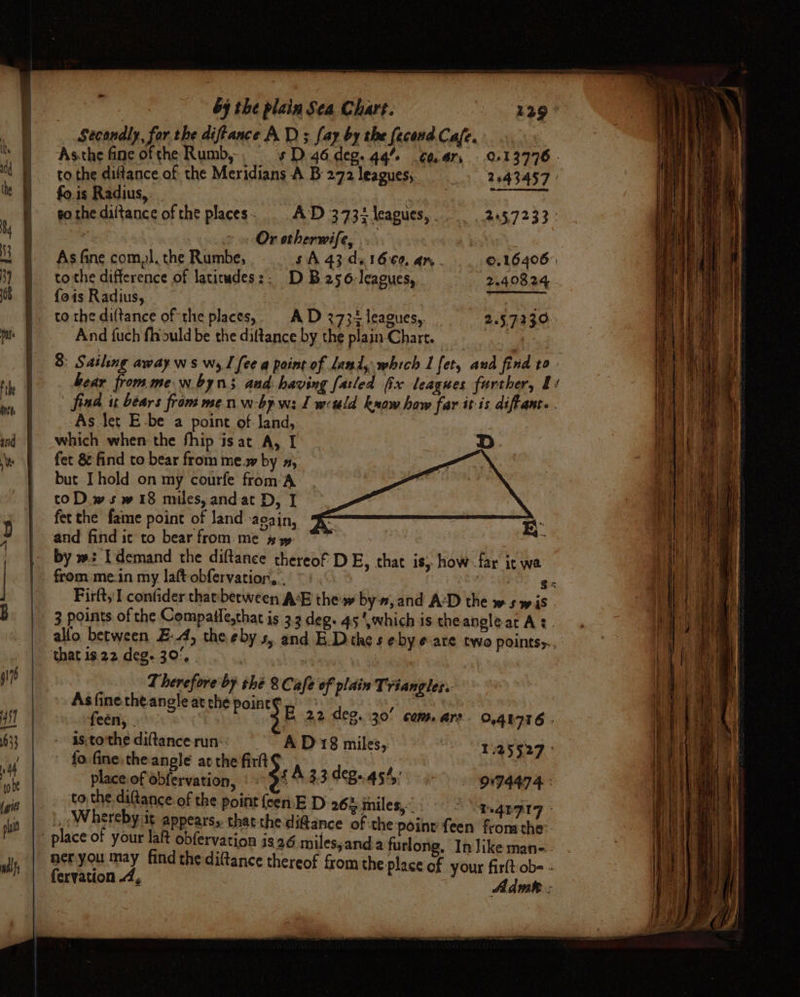 by the plain Sea Chart. 129
Secondly, for the diſtance A D ; ſay by the ſecond Caſe.
As the ſine of the Rumb, s D 46 deg. 44'. co. ar, 0.13776
to the diſtance of the Meridians A B 272 leagues, 2.43457
ſo is Radius,
to the diſtance of the places. A D 373½ leagues, 2.57233
Or otherwiſe,
As ſine compl. the Rumbe, s A 43 d. 16 co. ar. 0.16406
to the difference of latitudes: D B 256 leagues, 2.40824
ſo is Radius,
to the diſtance of the places, A D 373½ leagues, 2.57230
And ſuch ſhould be the diſtance by the plain Chart.
8: Sailing away w s w, I ſee a point of land, which I ſet, and find to
bear from me w by n; and having ſailed ſix leagues further, I
find it bears from me n w by w: I would know how far it is diſtant.
As let E be a point of land,
which when the ſhip is at A, I
ſet & find to bear from me w by n,
but I hold on my courſe from A
to D w s w 18 miles, and at D, I
ſet the ſame point of land again,
and find it to bear from me n w
by w: I demand the diſtance thereof D E, that is, how far it wa
from me in my laſt obſervation.
D
A
E
Firſt, I conſider that between A E the w by n, and A D the w s w is
3 points of the Compaſſe, that is 33 deg. 45', which is the angle at A :
alſo between E A, the e by s, and E D the s e by e are two points,
that is 22 deg. 30'.
Therefore by the 8 Caſe of plain Triangles.
As ſine the angle at the point
ſeen, E 22 deg. 30' com. are. 0,41716
is to the diſtance run A D 18 miles, 1.25527
ſo ſine the angle at the firſt
place of obſervation, s A 33 deg. 45', 9.74474
to the diſtance of the point ſeen E D 26⅛ miles, 1.41717
Whereby it appears, that the diſtance of the point ſeen from the
place of your laſt obſervation is 26 miles, and a furlong. In like man-
ner you may find the diſtance thereof from the place of your firſt ob-
ſervation A,
Admit